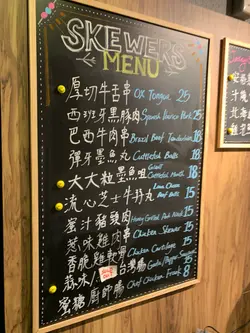 SKEWERS
MENU
厚切牛舌串 Ox Tongue 25
西班牙黑豚肉 Spanish Iberico Pork 25
巴西牛肉串 Brazil Beef 18
彈牙墨魚丸 Cuttlefish Balls 18
大大粒墨魚咀 Giant Cuttlefish 18
流心芝士牛丸 Lava Cheese Beef Balls 15
蜜汁豬頸肉 Honey Pork Neck 15
惹味雞肉串 Chicken Skewer 15
香脆雞軟骨 Chicken Cartilage 15
香味 台灣腸 15
蜜糖廚師腸 Chef Chicken Frank 8